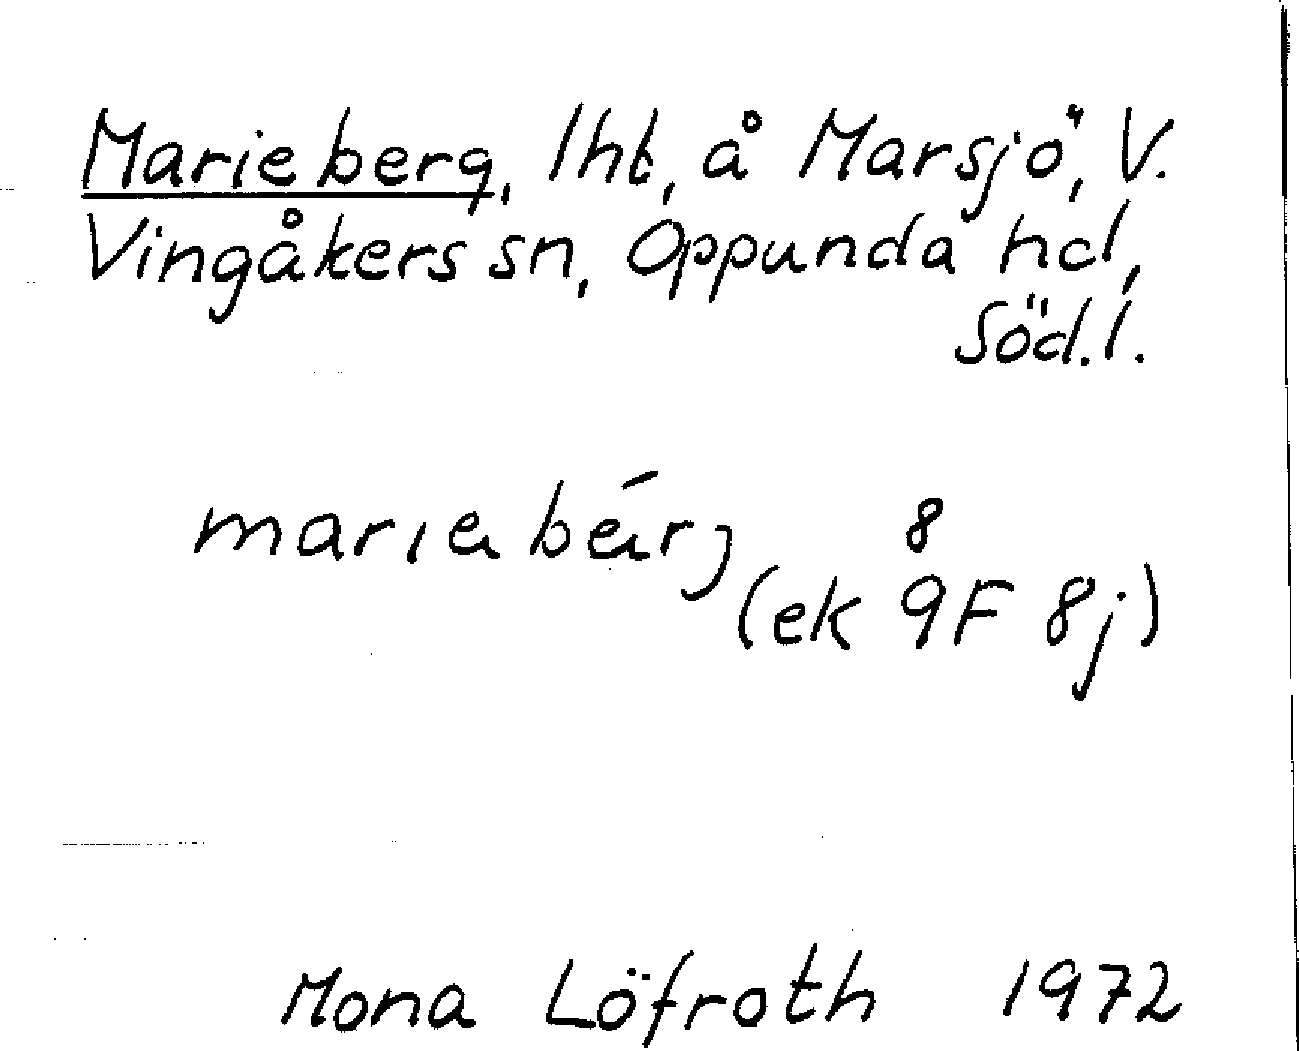 Marieberg, lht, å Marsjö, V.
Vingåkers sn, Oppunda hd,
Söd.l.
marıebérj
8
(ek 9F 8j)
Mona Löfroth 1972